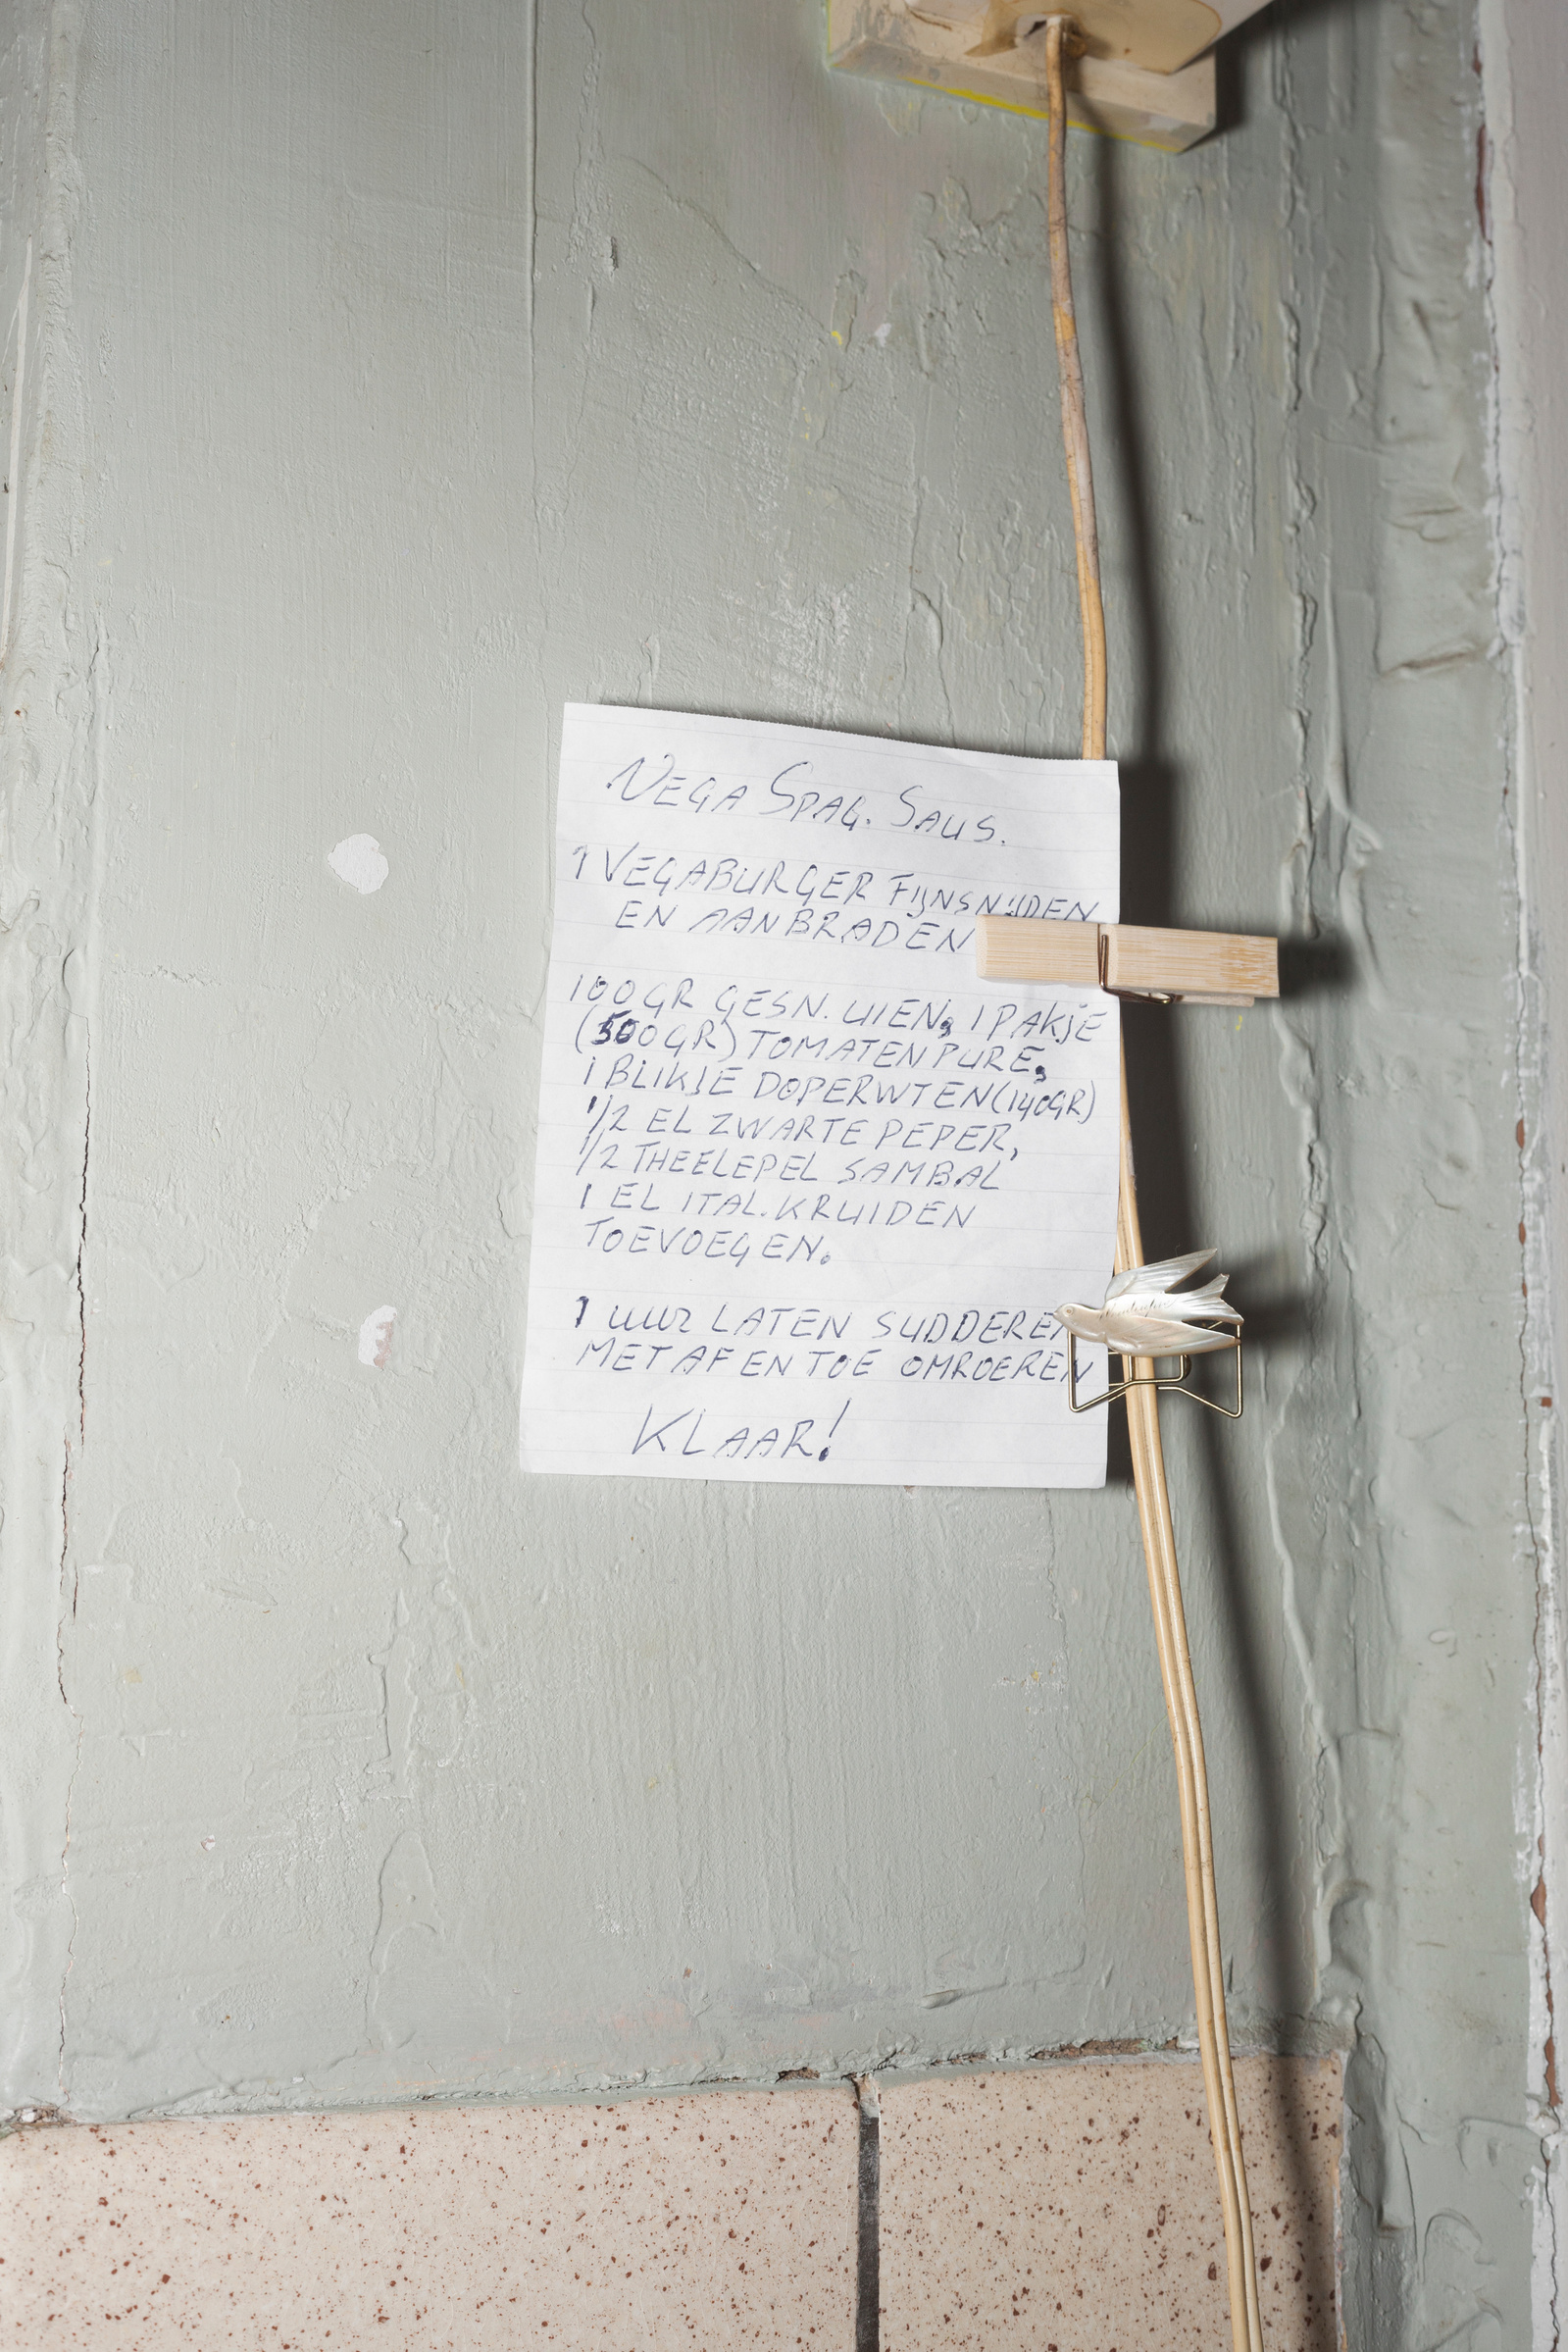 VEGA SPAG. SAUS.
1 VEGABURGER FIJNSNIJDEN
EN AANBRADEN
100 GR GESN. UIEN, 1 PAKJE
(500GR) TOMATENPURE,
1 BLIKJE DOPERWTEN (140GR)
1/2 EL ZWARTE PEPER,
1/2 THEELEPEL SAMBAL
1 EL ITAL. KRUIDEN
TOEVOEGEN.
1 UUR LATEN SUDDEREN
MET AF EN TOE OMROEREN
KLAAR!